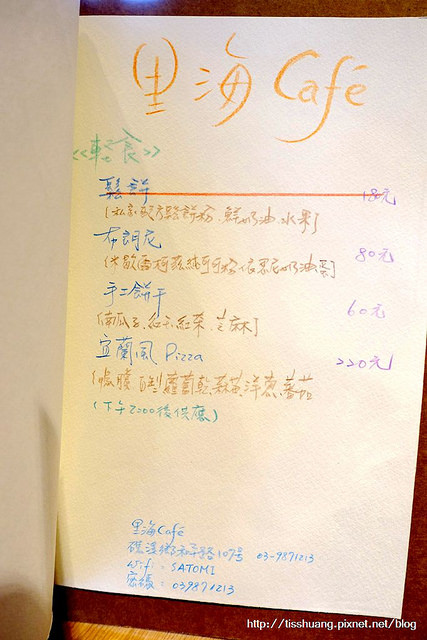 里海 Café
<<輕食>>
鬆餅 180元
[私家配方鬆餅粉.鮮奶油.水果]
布朗尼 80元
手工餅干 60元
[南瓜子、紅茶、芝麻]
宜蘭風 Pizza 220元
蘿蔔乾、蒜苗、洋蔥、蕃茄
(下午2:00後供應)
里海Café
礁溪鄉和平路107號 03-9871213
Wifi: SATOMI
密碼: 039871213
http://tisshuang.pixnet.net/blog